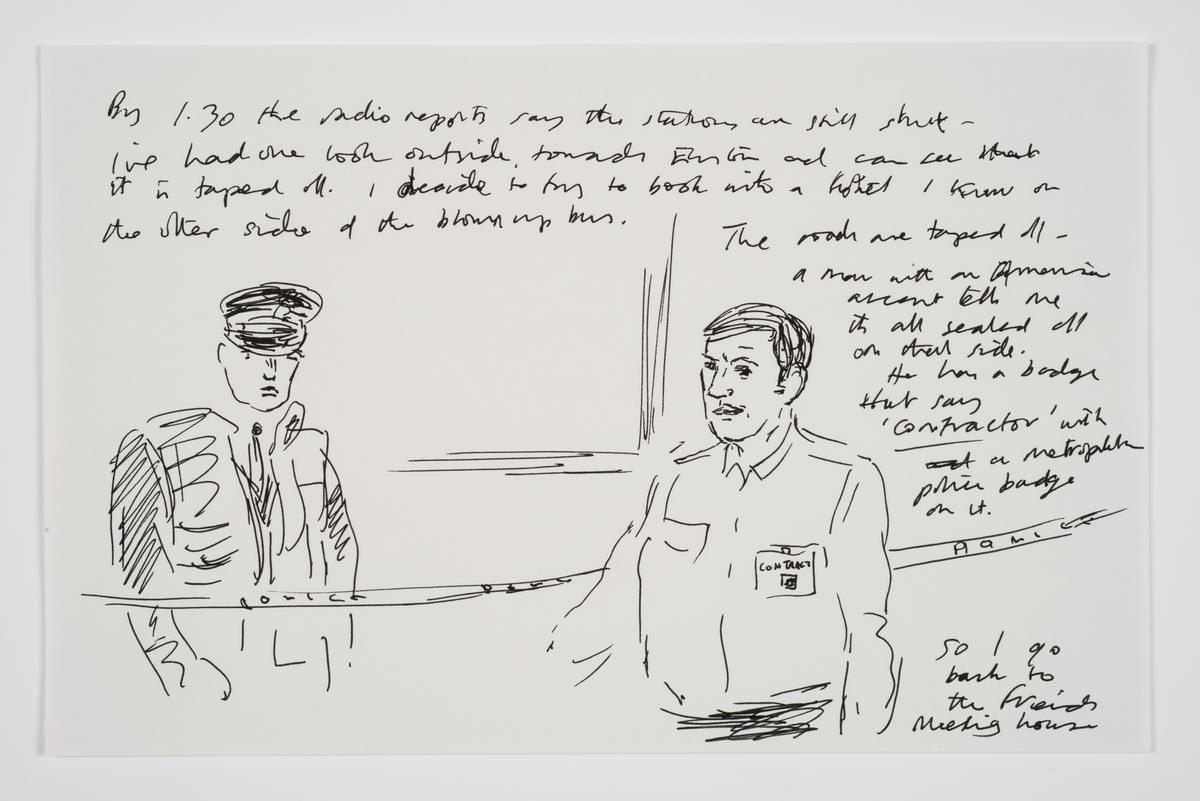 By 1.30 the radio reports say the stations are still shut -
I've had one look outside, towards Euston and can see that
it is taped off. I decide to try to book into a hotel I know on
the other side of the blown up bus.
The roads are taped off -
a man with an Armenian
accent tells me
it's all sealed off
on that side.
He has a badge
that says
'contractor' with
a metropolitan
police badge
on it.
CONTRACT
So I go
back to
the Friends
Meeting house